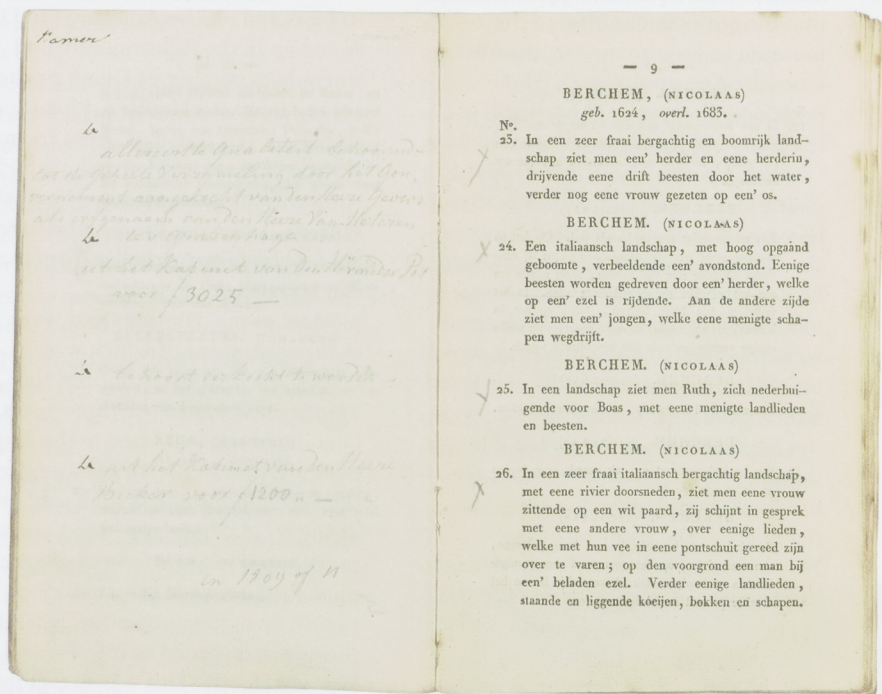 Kamer
1e
allereerste Qualiteit
1e
uit het Kabinet van den
voor ƒ 3025 —
1e
te worden
1e
uit het Kabinet van den Heere
voor ƒ 1200 „ —
in 1809 of 11
— 9 —
BERCHEM, (NICOLAAS)
geb. 1624, overl. 1683.
No.
23. In een zeer fraai bergachtig en boomrijk land-
schap ziet men een' herder en eene herderin,
drijvende eene drift beesten door het water,
verder nog eene vrouw gezeten op een' os.
BERCHEM. (NICOLAAS)
24. Een italiaansch landschap, met hoog opgaand
geboomte, verbeeldende een' avondstond. Eenige
beesten worden gedreven door een' herder, welke
op een' ezel is rijdende. Aan de andere zijde
ziet men een' jongen, welke eene menigte scha-
pen wegdrijft.
BERCHEM. (NICOLAAS)
25. In een landschap ziet men Ruth, zich nederbui-
gende voor Boas, met eene menigte landlieden
en beesten.
BERCHEM. (NICOLAAS)
26. In een zeer fraai italiaansch bergachtig landschap,
met eene rivier doorsneden, ziet men eene vrouw
zittende op een wit paard, zij schijnt in gesprek
met eene andere vrouw, over eenige lieden,
welke met hun vee in eene pontschuit gereed zijn
over te varen; op den voorgrond een man bij
een' beladen ezel. Verder eenige landlieden,
staande en liggende koeijen, bokken en schapen.